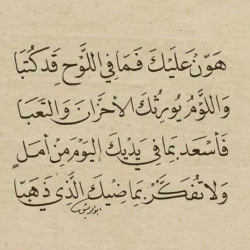 هَوِّنْ عَلَيْكَ فَمَا فِي اللَّوْحِ قَدْ كُتِبَا
وَاللَّوْمُ يُورِثُكَ الأَحْزَانَ وَالتَّعَبَا
فَاسْعَدْ بِمَا فِي يَدَيْكَ الْيَوْمَ مِنْ أَمَلٍ
وَلَا تُفَكِّرْ بِمَاضِيكَ الَّذِي ذَهَبَا